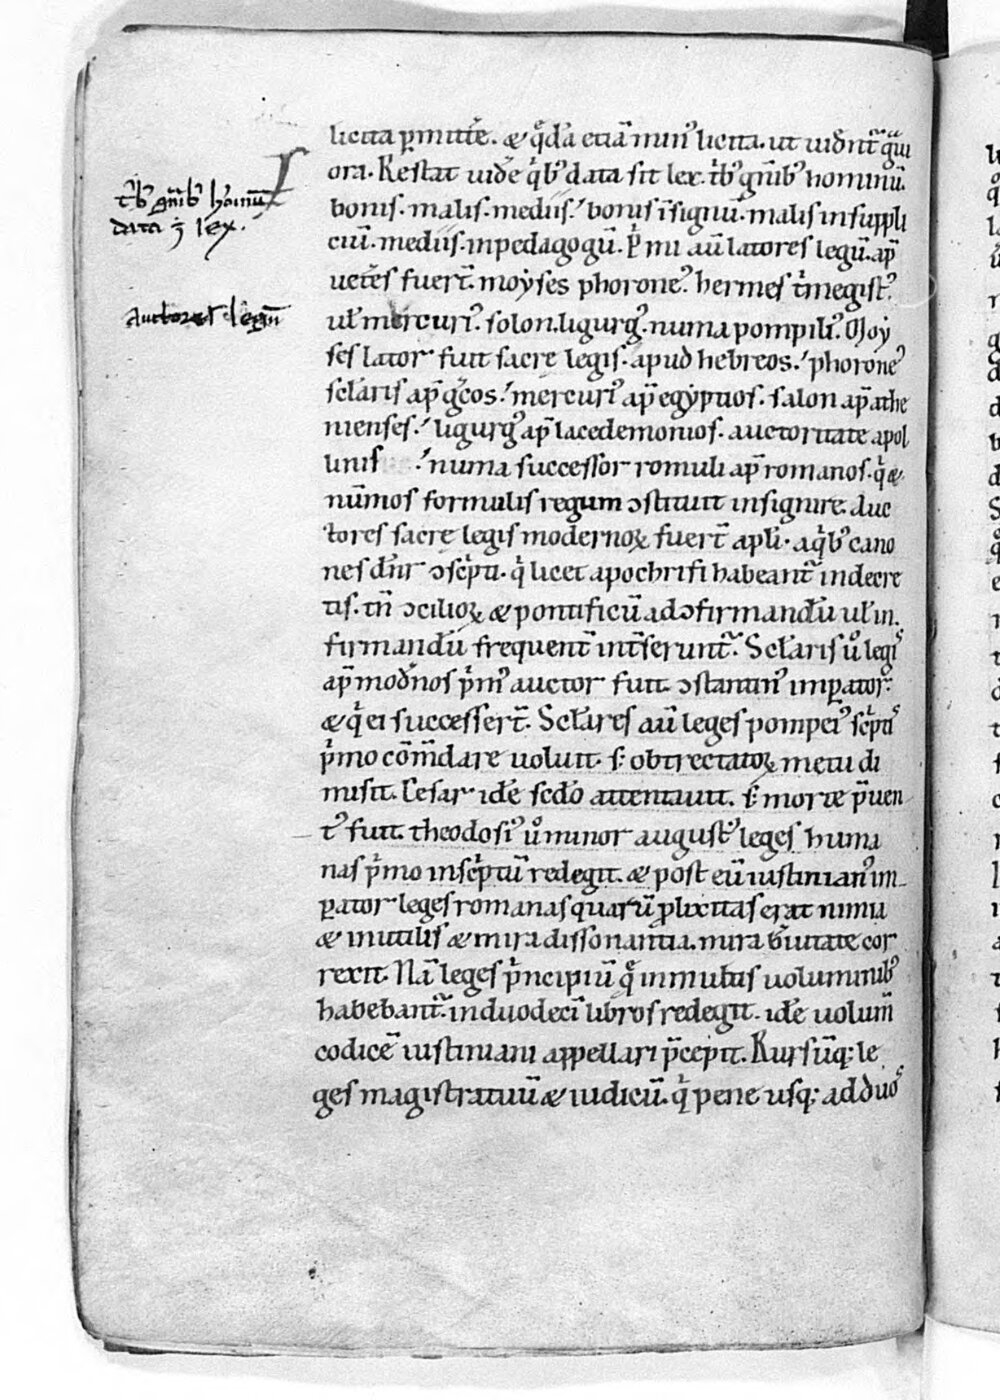 licita ꝑmittẽ. ⁊ qͦdã etiã minꝰ licita. ut uidnt̃ qͣui
ora. Restat uidẽ qͥbꝰ data sit lex. tͥbꝰ gñibꝰ hominũ.
bonis. malis. mediis. bonis ĩsignũ. malis in suppli
ciũ. mediis. in pedagogũ. Pͥmi aũ latores legũ. ap̃
uetẽs fuer̃t. moyses phoroneꝰ. hermes tͥmegistꝰ.
uł mercuriꝰ. solon. ligurgꝰ. numa pompiliꝰ. Moy
ses lator fuit sacrę legis. apud hebreos. phoroneꝰ
scłaris ap̃ g̃cos. mercuriꝰ ap̃ egyptios. salon ap̃ athe
nienses. ligurgꝰ ap̃ lacedemonios. auctoritate apol
linis. numa successor romuli ap̃ romanos. qͥ ⁊
nũmos formulis regum ↄstituit insignire. Auc
tores sacrę legis modernoꝝ fuer̃t apłi. a qͥbꝰ cano
nes dn̅r ↄscͥpti. qͥ licet apochrifi habeant᷑ in decre
tis. tñ ↄcilioꝝ ⁊ pontificũ ad ↄfirmandũ uł in
firmandũ frequent̃ int̃serunt᷑. Scłaris uͦ legisꝰ
ap̃ modños pͥmꝰ auctor fuit ↄstantinꝰ imꝑator.
⁊ qͥ ei successer̃t. Scłares aũ leges pompeiꝰ scͥptisꝰ
pͥmo cõm̃dare uoluit. s; obtrectatoꝝ metu di
misit. Cesar idẽ sedo attentauit. s; morte p̃uen
tꝰ fuit. theodosiꝰ uͦ minor augustꝰ leges huma
nas pͥmo in scͥptũ redegit. ⁊ post eũ iustinianꝰ im
ꝑator leges romanas quarũ ꝓlixitas erat nimia
⁊ inutilis ⁊ mira dissonantia. mira b̃uitate cor
rexit. Nã leges pͥncipiũ qͦ in multis uoluminibꝰ
habebant᷑. in duodecĩ libros redegit. idẽ uolum̃
codicẽ iustiniani appellari p̃cepit. Rursũq; le
ges magistratuũ ⁊ iudicũ. qͥ pene usq; ad duos
tͥbꝰ gñibꝰ hoĩnũ
data ÷ lex.
Auctores legũ